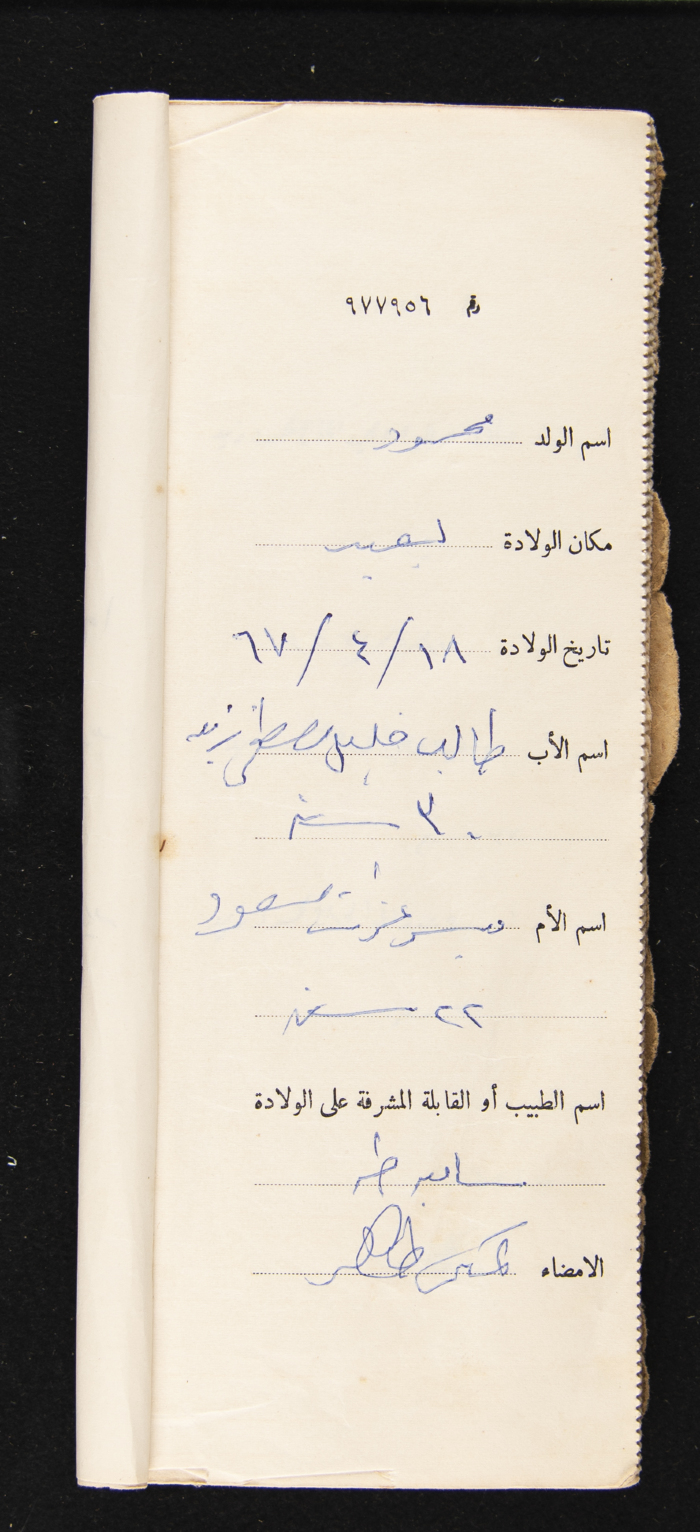 رقم ٩٧٧٩٥٦
اسم الولد محمود
مكان الولادة
تاريخ الولادة ١٨ / ٤ / ٦٧
اسم الأب طالب خليل مصطفى
٣٠ سنة
اسم الأم عزت مسعود
٢٢ سنة
اسم الطبيب أو القابلة المشرفة على الولادة
طه
الامضاء